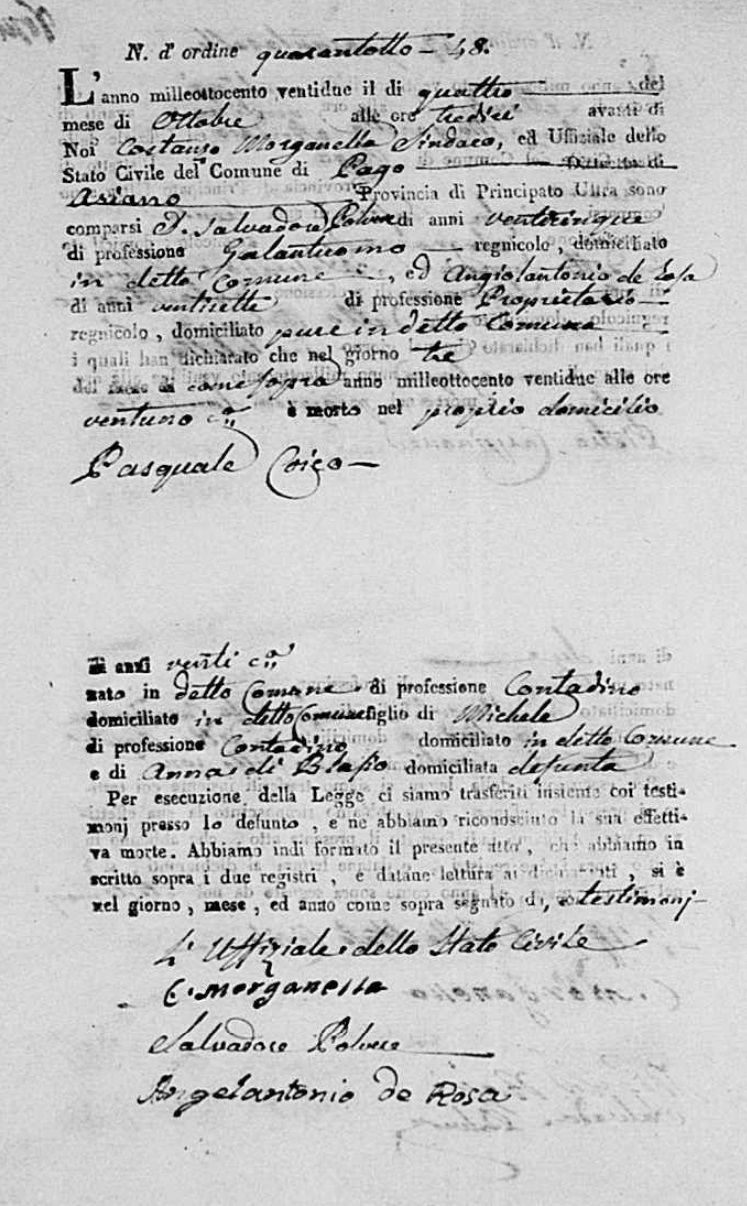 N. d' ordine quarantotto – 48.
L'anno milleottocento ventidue il di quattro del
mese di Ottobre alle ore tredici avanti di
Noi Costanzo Morganella Sindaco, ed Uffiziale dello
Stato Civile del Comune di Pago
Provincia di Principato Ultra sono
comparsi D. Salvadore Polvere di anni venticinque
di professione Galantuomo regnicolo, domiciliato
in detto Comune, ed Angiolantonio de Rosa
di anni ventisette di professione Proprietario
regnicolo, domiciliato pure in detto Comune
i quali han dichiarato che nel giorno tre
del mese di come sopra anno milleottocento ventidue alle ore
ventuno ca è morto nel proprio domicilio
Pasquale
di anni venti ca
nato in detto Comune di professione Contadino
domiciliato in detto Comune figlio di Michele
di professione Contadino domiciliato in detto Comune
e di Anna di Blasio domiciliata defunta
Per esecuzione della Legge ci siamo trasferiti insieme coi testi-
monj presso lo defunto, e ne abbiamo riconosciuto la sua effetti-
va morte. Abbiamo indi formato il presente atto, che abbiamo in
scritto sopra i due registri, e datane lettura ai dichiaranti, si è
nel giorno, mese, ed anno come sopra segnato da testimonj
L' Uffiziale dello Stato Civile
C. Morganella
Salvadore Polvere
Angelantonio de Rosa